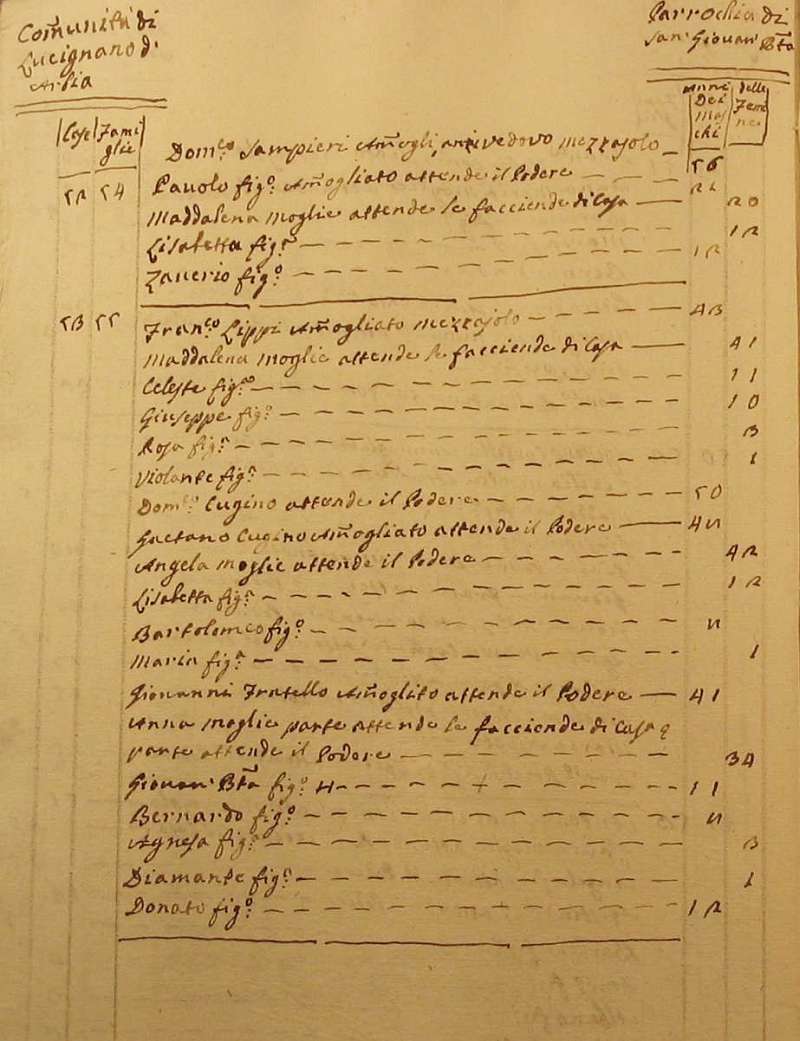 Com̃unità di
Lucignano d'
Arbia
Parrochia di
San' Giovan' Bta
Case Famiglie
Anni Dei Maschi
delle Femine
Dom.co Sampieri Am̃ogli, anzi vedovo mezzajolo 56
52 54 Pavolo fig.o Am̃ogliato attende il Podere
Maddalena moglie attende le facciende di Casa 20
Lisabetta fig.a 12
Zaverio fig.o 12
53 55 Fran.co Lippi Am̃ogliato mezzajolo 43
Maddalena moglie attende le facciende di Casa 41
Celeste fig. 11
Giuseppe fig.o 10
Rosa fig.a 3
Violante fig.a 1
Dom.co Cugino attende il Podere 50
Gaetano Cugino Am̃ogliato attende il Podere
Angela moglie attende il Podere 42
Lisabetta fig.a 12
Bartolomeo fig.o
Maria fig.a 1
Giovanni Fratello Am̃oglito attende il Podere 41
Anna moglie parte attende le facciende di Casa e
parte attende il Podere 34
Giovan' Bta fig.o 11
Bernardo fig.o
Agnesa fig.a 3
Diamante fig.a 1
Donato fig.o 12